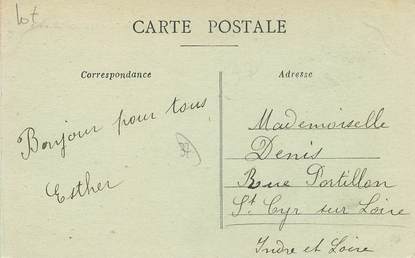 Lot
CARTE POSTALE
Correspondance
Adresse
Bonjour pour tous
Esther
Mademoiselle
Denis
Rue Portillon
St Cyr sur Loire
Indre et Loire